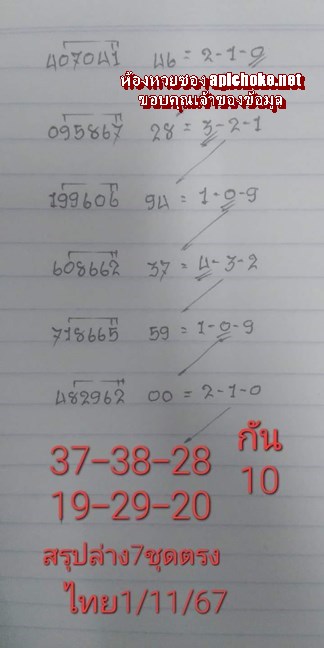 407041 46 = 2-1-0
ห้องหวยซอง apichoke.net
ขอบคุณเจ้าของข้อมูล
095867 28 = 3-2-1
199606 94 = 1-0-9
608662 37 = 4-3-2
718665 59 = 1-0-9
482962 00 = 2-1-0
37-38-28 กัน
19-29-20 10
สรุปล่าง7ชุดตรง
ไทย1/11/67